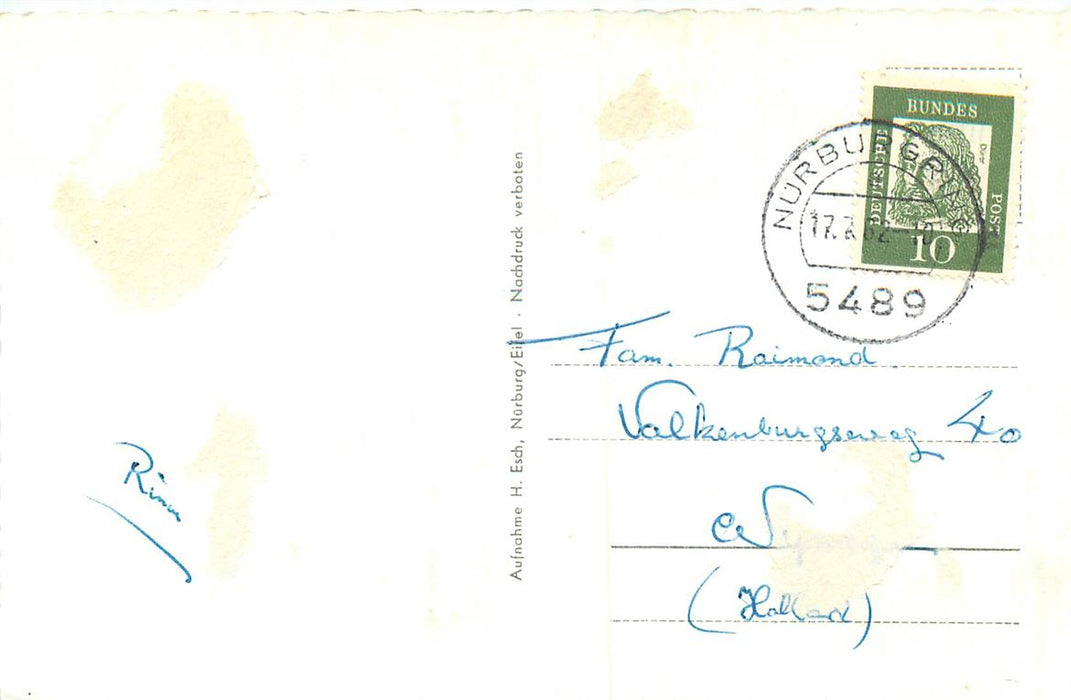 Rinus
Aufnahme H. Esch, Nürburg/Eifel · Nachdruck verboten
BUNDES
DEUTSCHE
POST
Dürer
10
NÜRBURGRING
17.7.62-10
5489
Fam. Raimond
Valkenburgseweg 40
Nijmegen
(Holland)